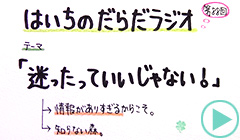 第22回
はいちのだらだラジオ
テーマ
「迷ったっていいじゃない!」
↳情報がありすぎるからこそ。
↳知らない森。